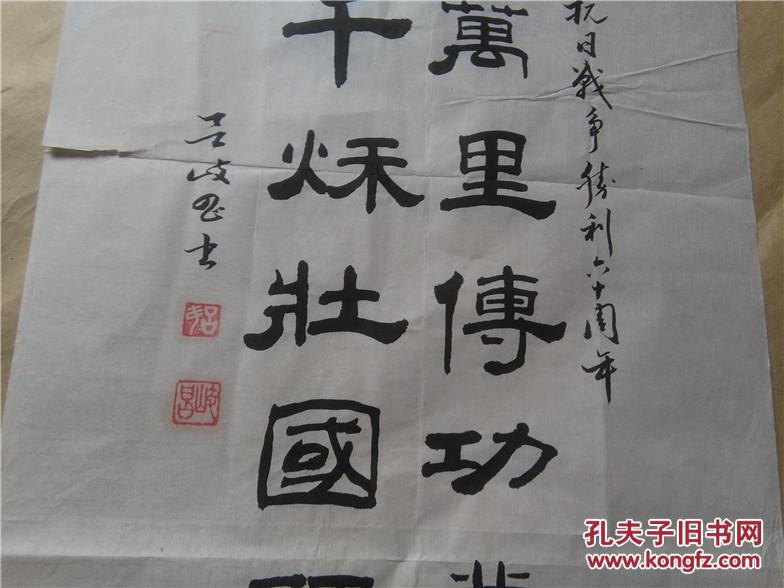 抗日战争胜利六十周年
萬里傳功
千秌壯國
吕岐书
孔夫子旧书网
www.kongfz.com